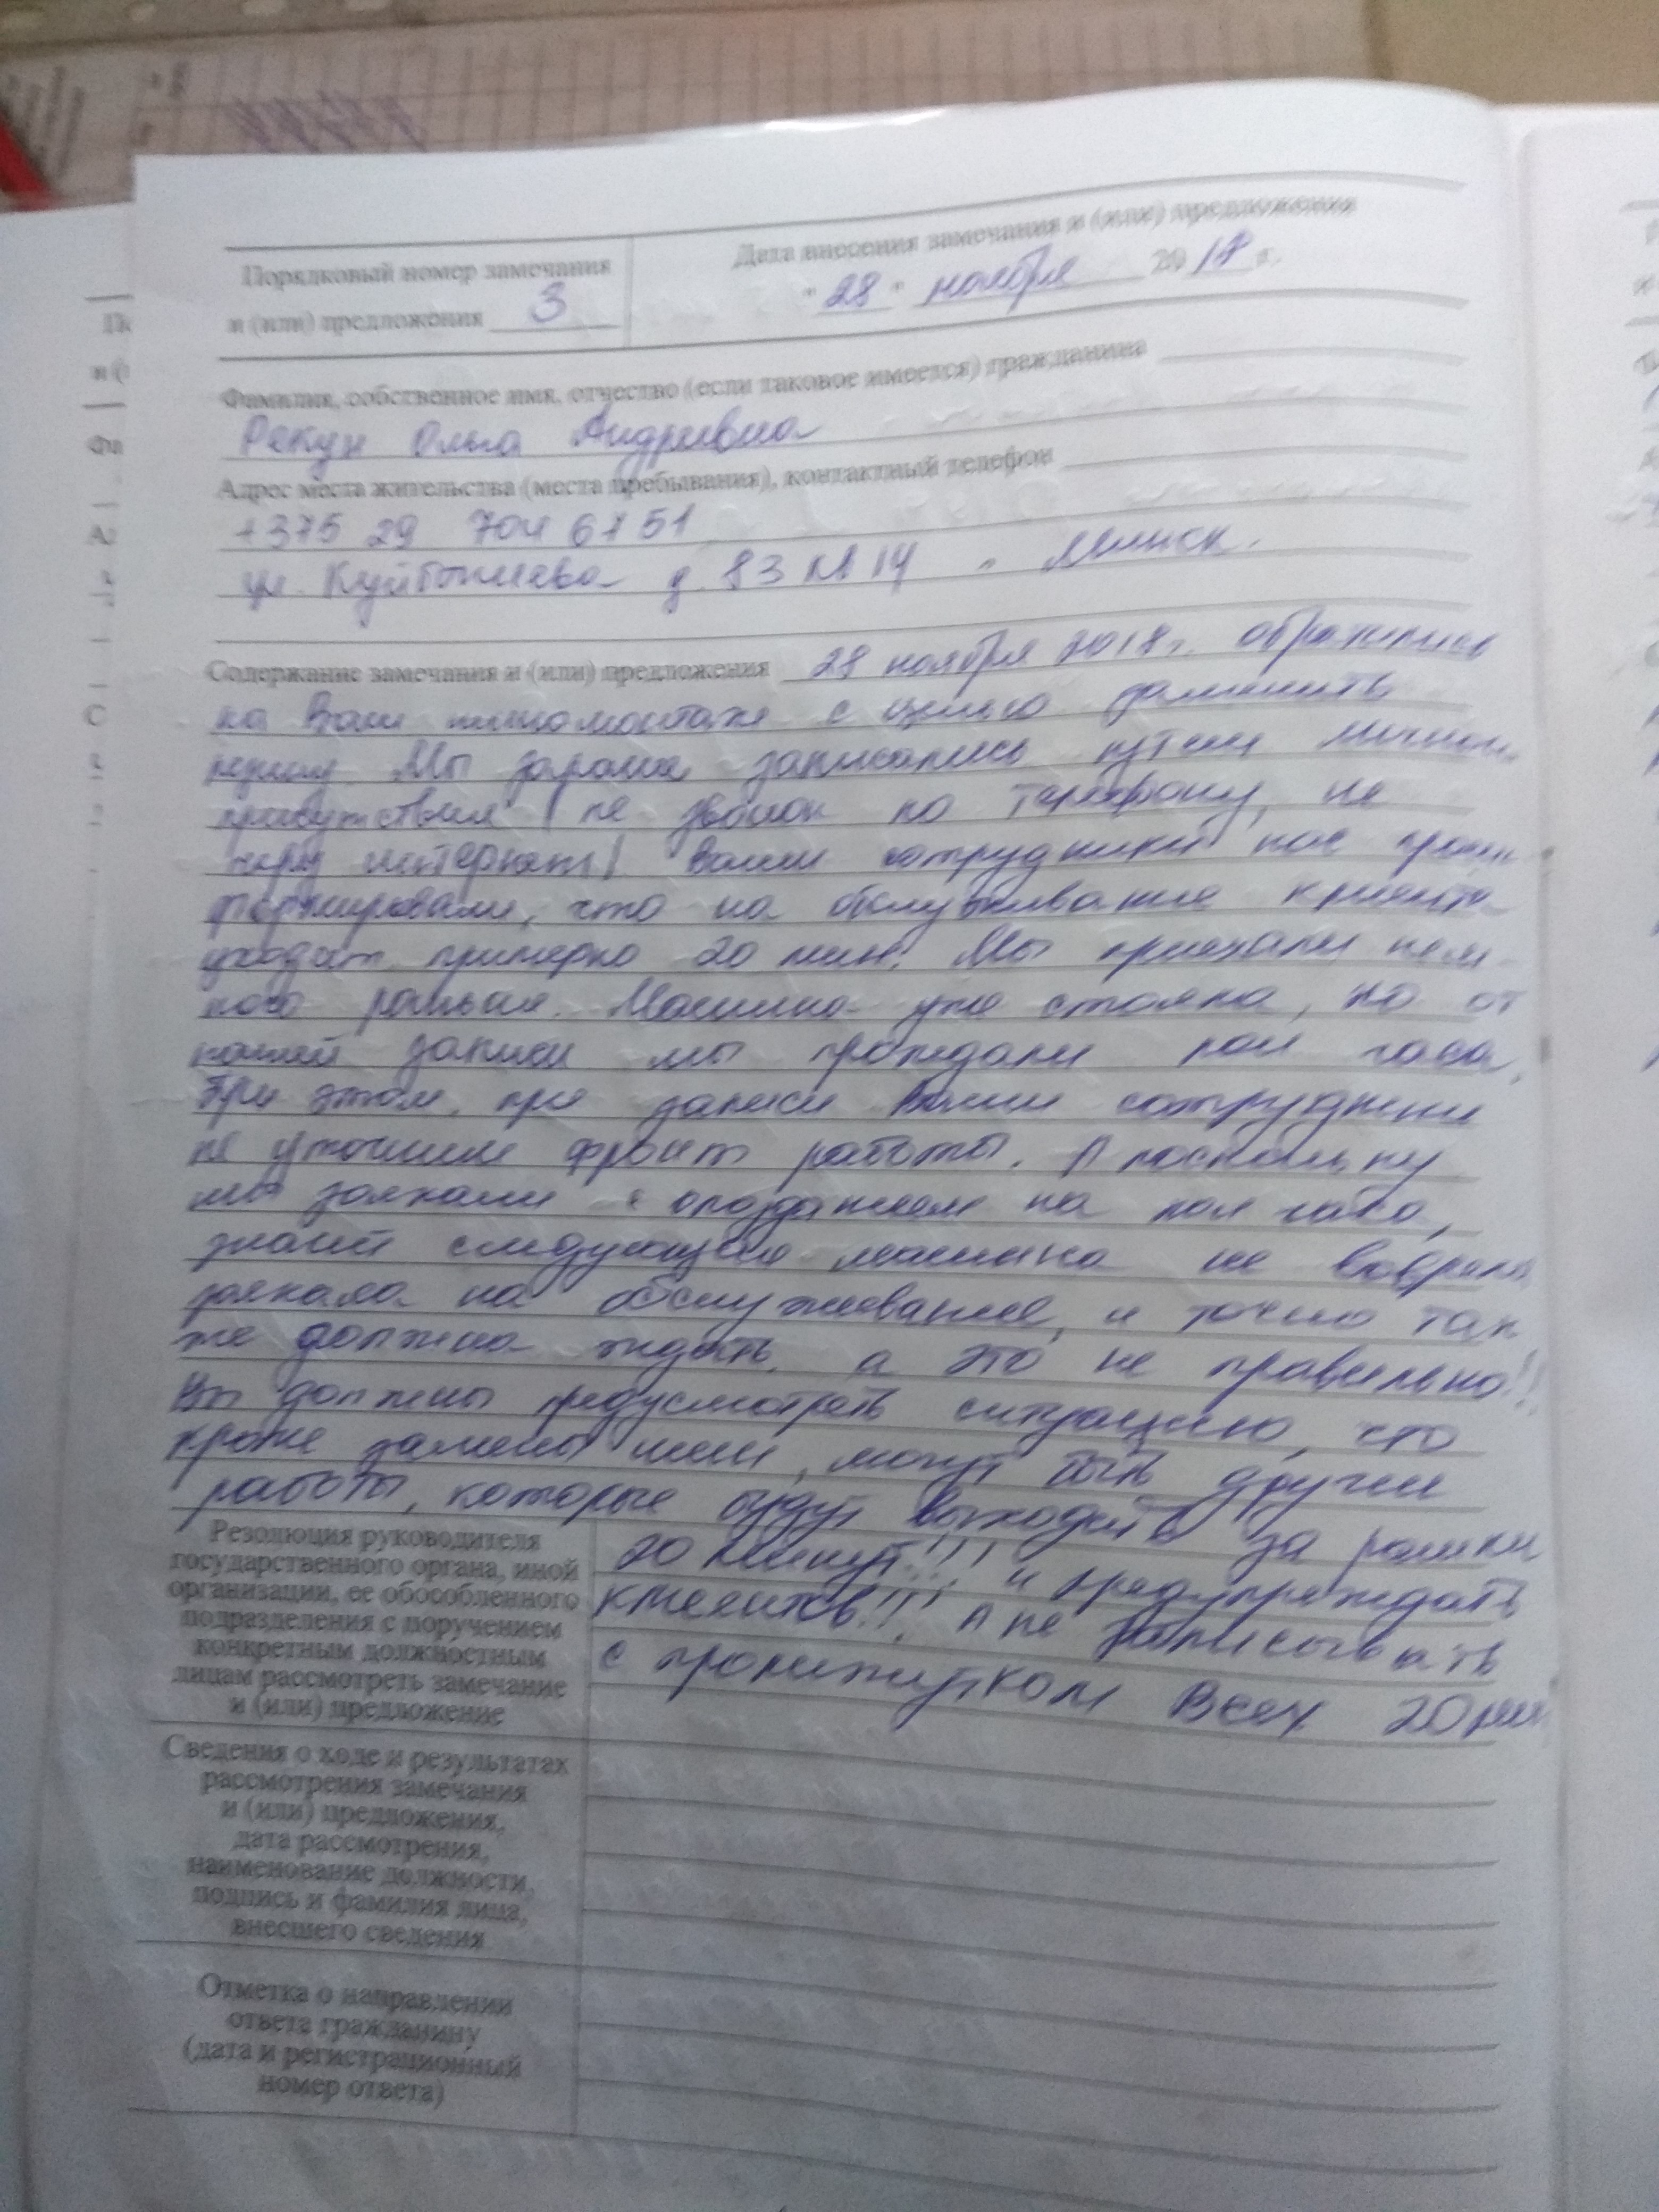 Порядковый номер замечания
и (или) предложения 3
Дата внесения замечания и (или) предложения
"28" ноября 2018 г.
Фамилия, собственное имя, отчество (если таковое имеется) гражданина
Рекун Ольга Андреевна
Адрес места жительства (места пребывания), контактный телефон
+375 29 704 67 51
ул. Куйбышева д. 83 кв 14 г. Минск.
Содержание замечания и (или) предложения 28 ноября 2018 г. обратились
на Ваш шиномонтаж с целью заменить
резину. Мы заранее записались путем личного
присутствия (не звонок по телефону, не
через интернет) Ваши сотрудники нас проин
формировали, что на обслуживание клиента
уходит примерно 20 мин. Мы приехали нем-
ного раньше. Машина уже стояла, но от
нашей записи мы прождали пол часа.
При этом, при записи Ваши сотрудники
не уточнили фронт работы. А поскольку
мы заехали с опозданием на пол часа,
значит следующая машина не вовремя
заехала на обслуживание, и точно так
же должна ждать, а это не правильно!!
Вы должны предусмотреть ситуацию, что
кроме замены шин, могут быть другие
работы, которые будут выходить за рамки
20 минут!!! и предупреждать
клиентов!!! А не записывать
с промежутком всех 20 мин
Резолюция руководителя
государственного органа, иной
организации, ее обособленного
подразделения с поручением
конкретным должностным
лицам рассмотреть замечание
и (или) предложение
Сведения о ходе и результатах
рассмотрения замечания
и (или) предложения,
дата рассмотрения,
наименование должности,
подпись и фамилия лица,
внесшего сведения
Отметка о направлении
ответа гражданину
(дата и регистрационный
номер ответа)